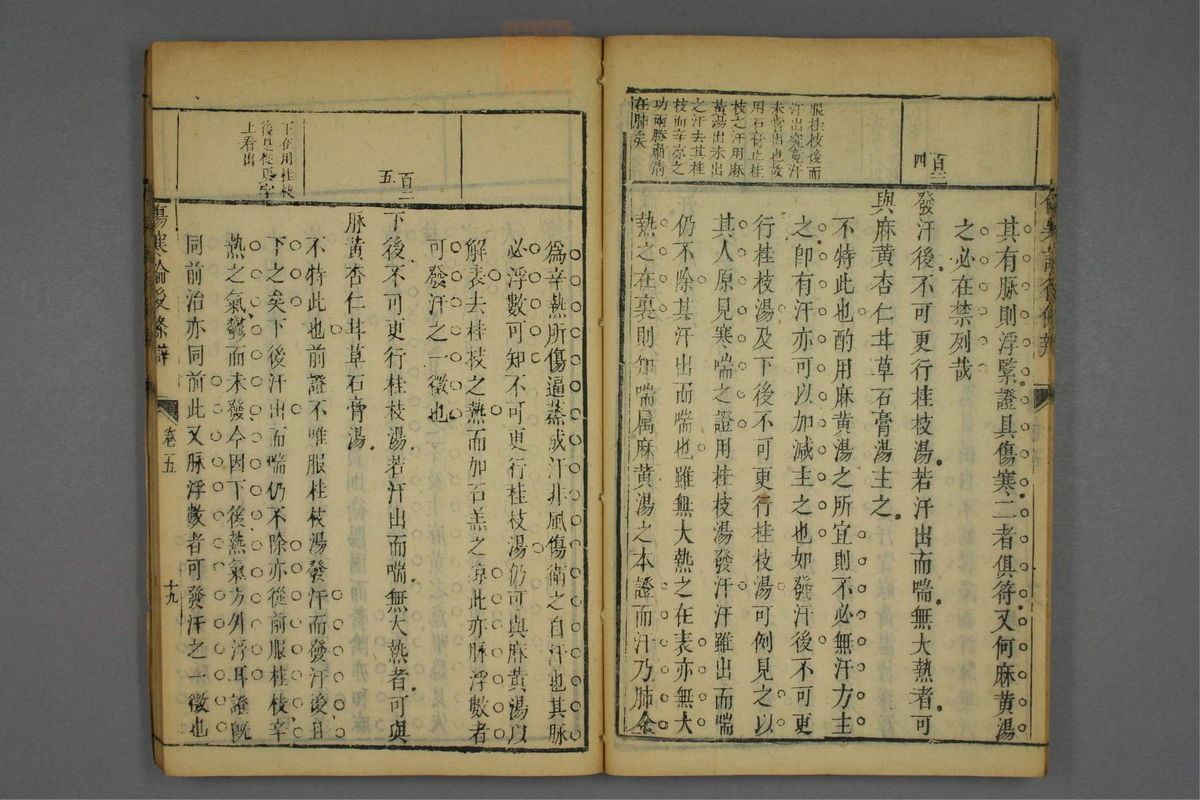 百二
四
服桂枝後而
汗出究竟汗
未當出也故
用石膏止桂
枝之汗用麻
黃湯出未出
之汗去其桂
枝而辛亦之
功兩勝肅清
在肺矣
其有脉則浮緊證具傷寒二者俱符又何麻黃湯
之必在禁列哉
發汗後不可更行桂枝湯若汗出而喘無大熱者可
與麻黃杏仁甘草石膏湯主之
不特此也酌用麻黃湯之所宜則不必無汗方主
之即有汗亦可以加減主之也如發汗後不可更
行桂枝湯及下後不可更行桂枝湯可例見之以
其人原見寒喘之證用桂枝湯發汗汗雖出而喘
仍不除其汗出而喘也雖無大熱之在表亦無大
熱之在裏則知喘属麻黃湯之本證而汗乃肺金
百二
五
下在用桂枝
後是從更字
上看出
爲辛熱所傷逼蒸成汗非風傷衛之自汗也其脉
必浮數可知不可更行桂枝湯仍可與麻黃湯以
解表去桂枝之熱而加石羔之凉此亦脉浮數者
可發汗之一徵也
下後不可更行桂枝湯若汗出而喘無大熱者可與
脉黃杏仁甘草石膏湯
不特此也前證不唯服桂枝湯發汗而發汗後且
下之矣下後汗出而喘仍不除亦從前服桂枝辛
熱之氣鬱而未發今因下後熱氣方外浮耳證旣
同前治亦同前此又脉浮數者可發汗之一徵也
傷寒論後條辯
卷五
十九